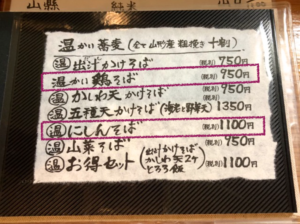 山縣 純米
温かい蕎麦 (全て山形産 粗挽き 十割)
温 出汁かけそば (税別) 750円
温かい鶏そば (税別) 950円
温 かしわ天かけそば (税別) 950円
温 五種天かけそば (海老と野菜天) 1350円
温 にしんそば (税別) 1100円
温 山菜そば (税別) 950円
温 お得セット (出汁かけそば かしわ天2ケ とろろ飯) (税別) 1100円